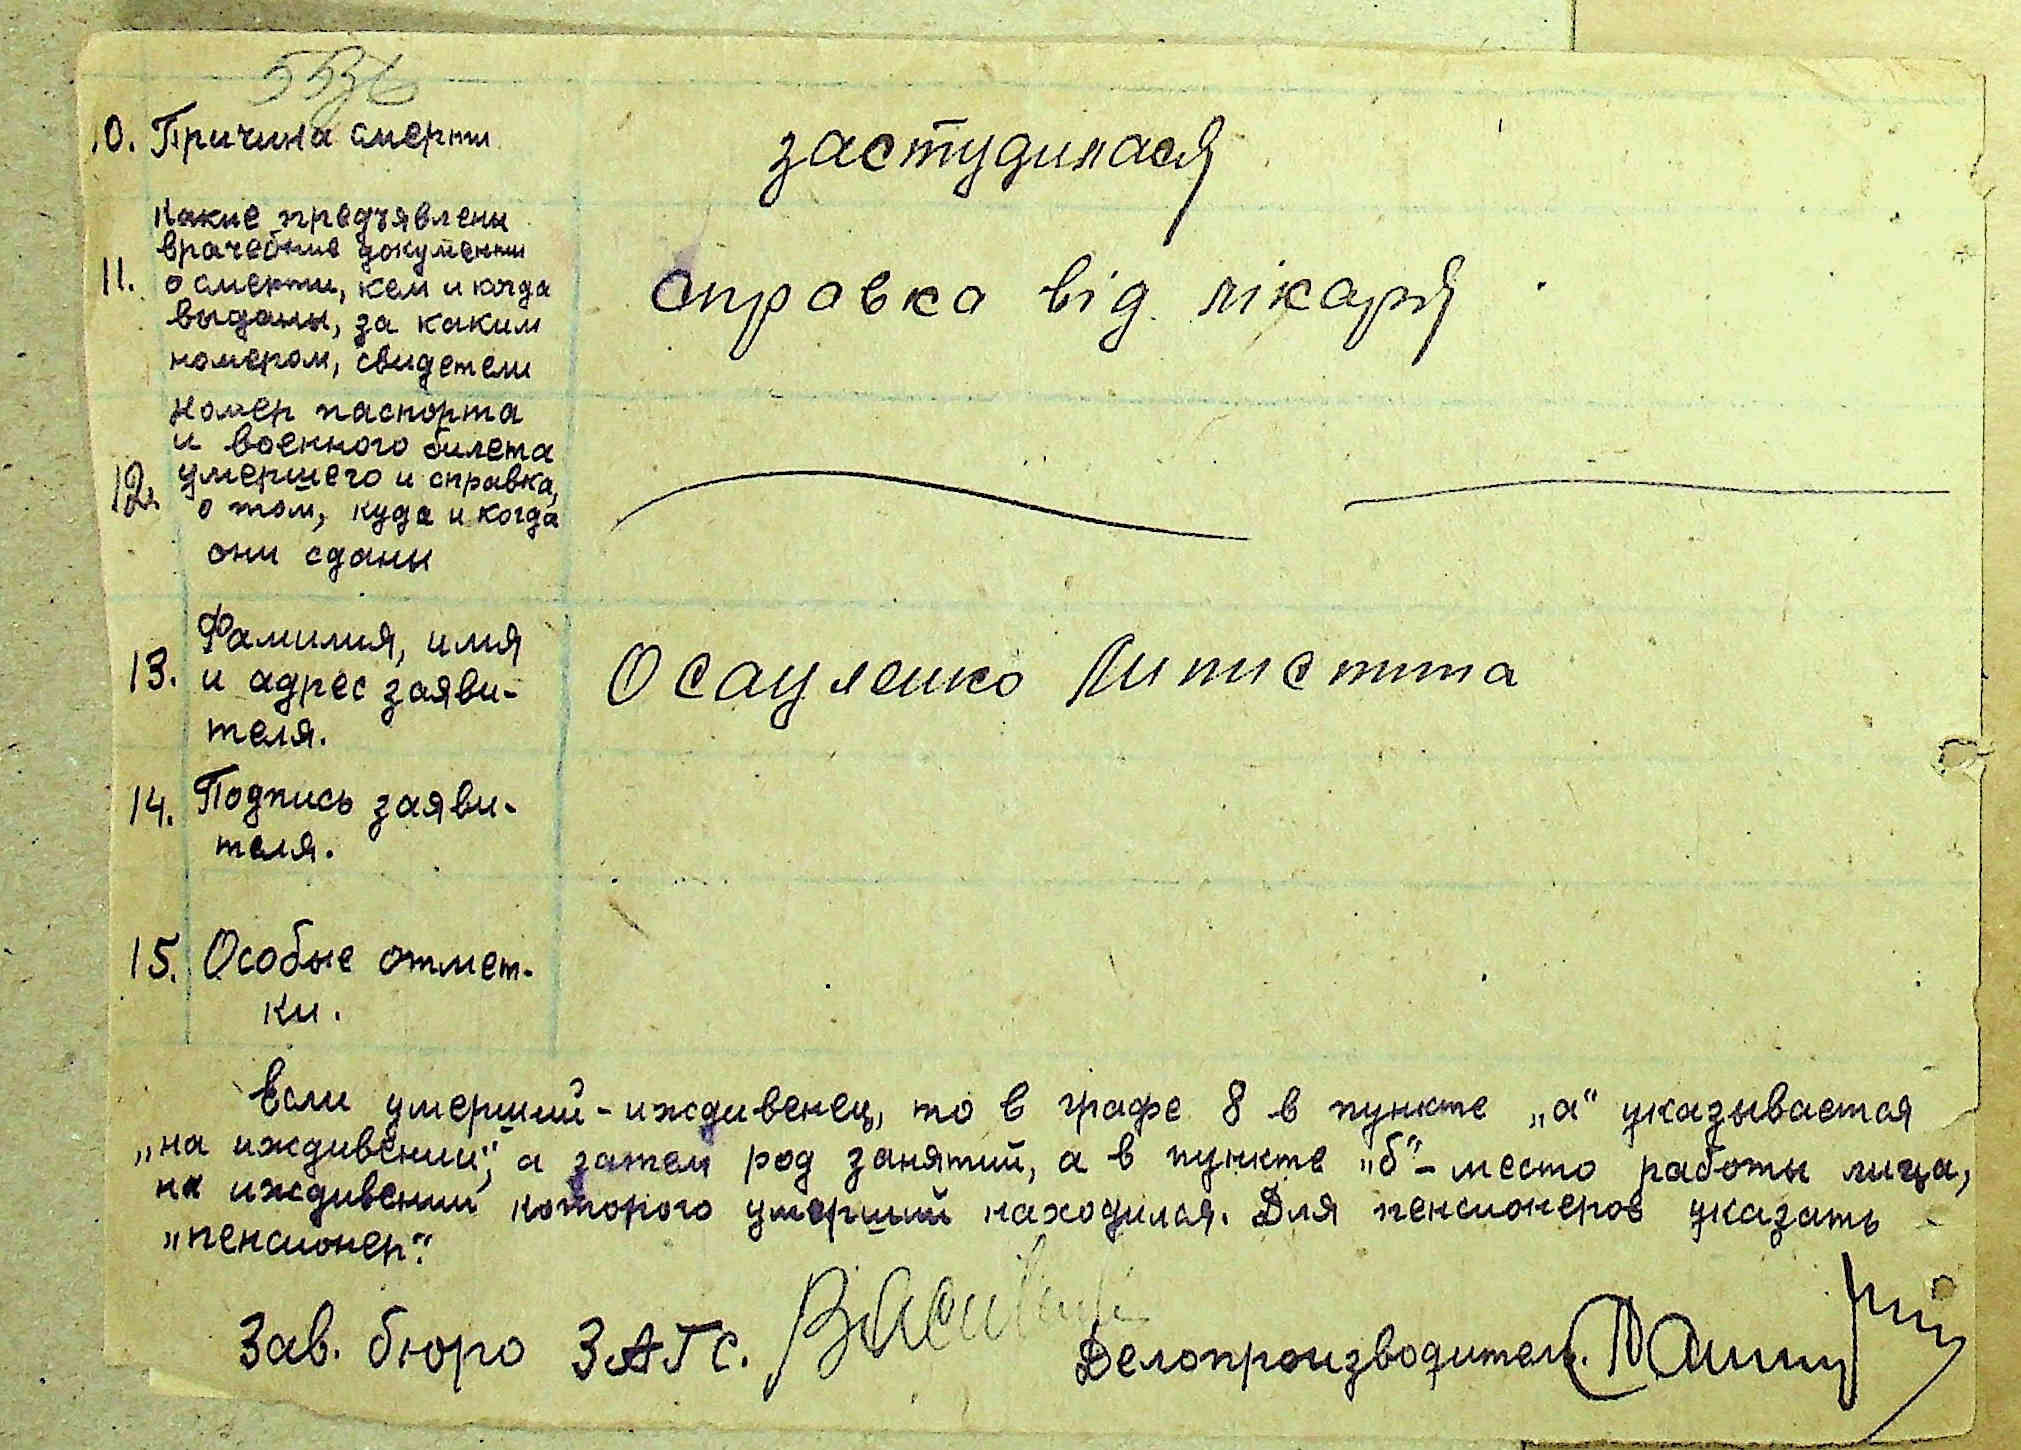 10. Причина смерти
застудилася
Какие предъявлены
врачебные документы
11. о смерти, кем и когда
выданы, за каким
номером, свидетели
справка від лікаря
Номер паспорта
и военного билета
12. умершего и справка,
о том, куда и когда
они сданы
Фамилия, имя
13. и адрес заяви-
теля.
Осауленко
14. Подпись заяви-
теля.
15. Особые отмет-
ки.
Если умерший - иждивенец, то в графе 8 в пункте „а" указывается
„на иждивении", а затем род занятий, а в пункте „б" - место работы лица,
на иждивении которого умерший находился. Для пенсионеров указать
„пенсионер".
Зав. бюро ЗАГС. Делопроизводитель.